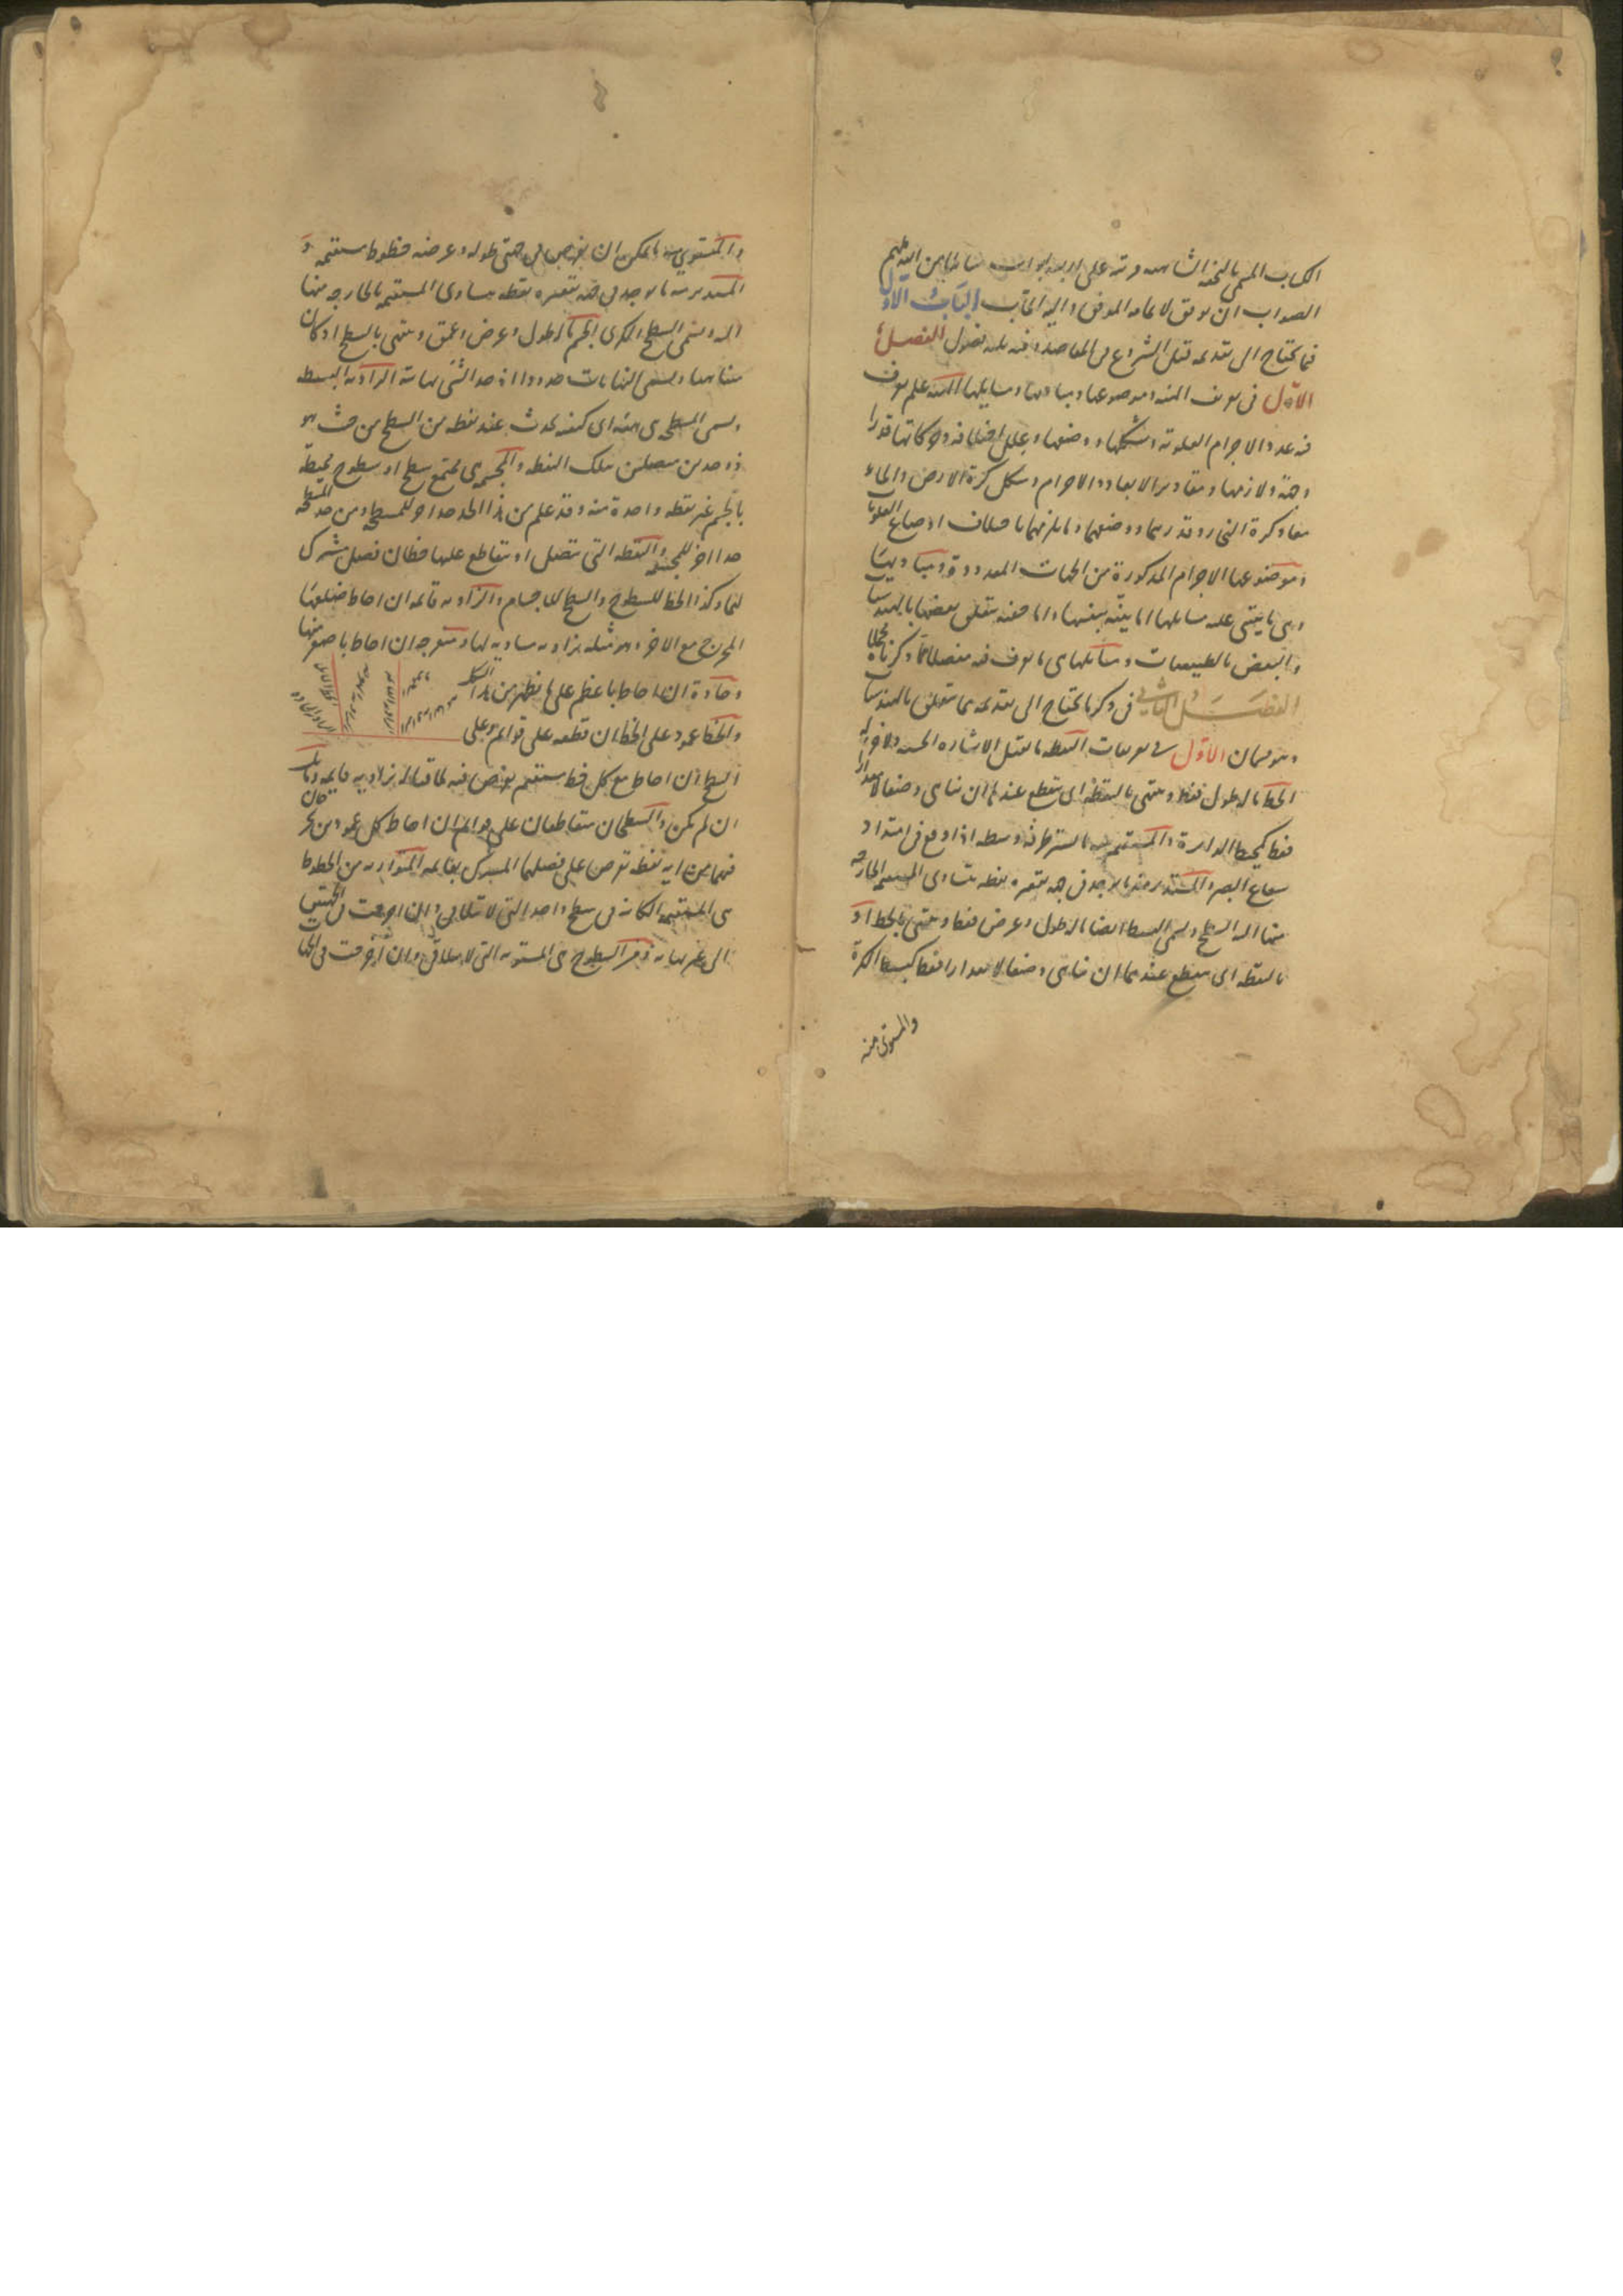 الكتاب المسمى بالتحفة الشاهية ورتبته على اربعة ابواب سائلا من الله ملهم
الصواب ان يوفق لاتمامه انه الموفق واليه المآب الباب الاول
فيما يحتاج الى تقديمه قبل الشروع في المقاصد وفيه ثلثه فصول الفصل
الاول في تعريف الهيئه وموضوعها ومباديها ومسايلها الهيئة علم يعرف
فيه عدد الاجرام العلوية وشكلها ووضعها وعلل اختلافه وحركاتها قدرا
وجهة ولازمها ومقادير الابعاد والاجرام وشكل كرة الارض والماء
معا وكرة النار وقدرهما ووضعهما وما يلزمهما باختلاف اوضاع العلويات
وموضوعها الاجرام المذكورة من الجهات المعدودة ومباديها
وهي ما يبتنى عليه مسايلها اما بينة بنفسها واما خفية يتعلق بعضها بالهندسيات
والبعض بالطبيعيات ومسائلها هي ما يعرف فيه مفصلا مما ذكرناه مجملا
الفصل الثاني في ذكر ما يحتاج الى تقديمه مما يتعلق بالهندسيات
وهو قسمان الاول في تعريفات النقطه ما يقبل الاشاره الحسيه ولا جزء له
الخط ما له طول فقط وينتهي بالنقطة اى ينقطع عندها ان تناهى وضعا لا مقدارا
فقط كمحيط الدايرة والمستقيم منه ما يستر طرفه وسطه اذا وقع في امتداد
شعاع البصر والمستدير منه ما يوجد في جهة تقعره نقطه يتساوى المستقيمة الخارجة
منها اليه السطح ويسمى البسيط ايضا ما له طول وعرض فقط وينتهي بالخط او
بالنقطه اى ينقطع عندهما ان تناهى وضعا لا مقدارا فقط كبسيط الكرة
والمستوى منه
والمستوي منه ما يمكن ان يفرض في جهتي طوله وعرضه خطوط مستقيمه و
المستدير منه ما يوجد في جهة تقعره نقطه يتساوى المستقيمه الخارجه منها
اليه ويسمى السطح الكرى الجسم ما له طول وعرض وعمق وينتهي بالسطح او كان
متناهيا ويسمى النهايات حدودا اذ حد الشيء نهايته الزاوية البسيطة
ويسمى المسطحه هي هيئة اى كيفيه تحدث عند نقطه من السطح من حيث هو
ذو حدين متصلين بتلك النقطه والمجسمه هي مجتمع سطح او سطوح محيطة
بالجسم عند نقطه واحدة منه وقد علم من هذا الحد حدا اخر للمسطحه ومن حد المسطحه
حدا اخر للمجسمه والنقطه التي تتصل او يتقاطع عليها خطان فصل مشترك
لهما وكذا الخط للسطوح والسطح للاجسام والزاويه قائمه ان احاط ضلعها
المخرج مع الاخر بمثله بزاويه مساويه لها ومنفرجه ان احاط باصغر منها
وحادة ان احاط باعظم على ما يظهر من هذا الشكل
والخط عمود على الخط ان قطعه على قوائم وعلى
السطح ان احاط مع كل خط مستقيم يفرض فيه ملاقيا له بزاويه قايمه ومايل
ان لم يكن والسطحان متقاطعان على قوائم ان احاط كل عمودين يخرجان
فيهما من ايه نقطه تفرض على فصلهما المشترك بقايمه المتوازيه من الخطوط
هي المستقيمه الكائنة في سطح واحد التي لا تتلاقى وان اخرجت في الجهتين
الى غير نهايه ومن السطوح هي المستويه التي لا تتلاقى وان اخرجت في الجهات